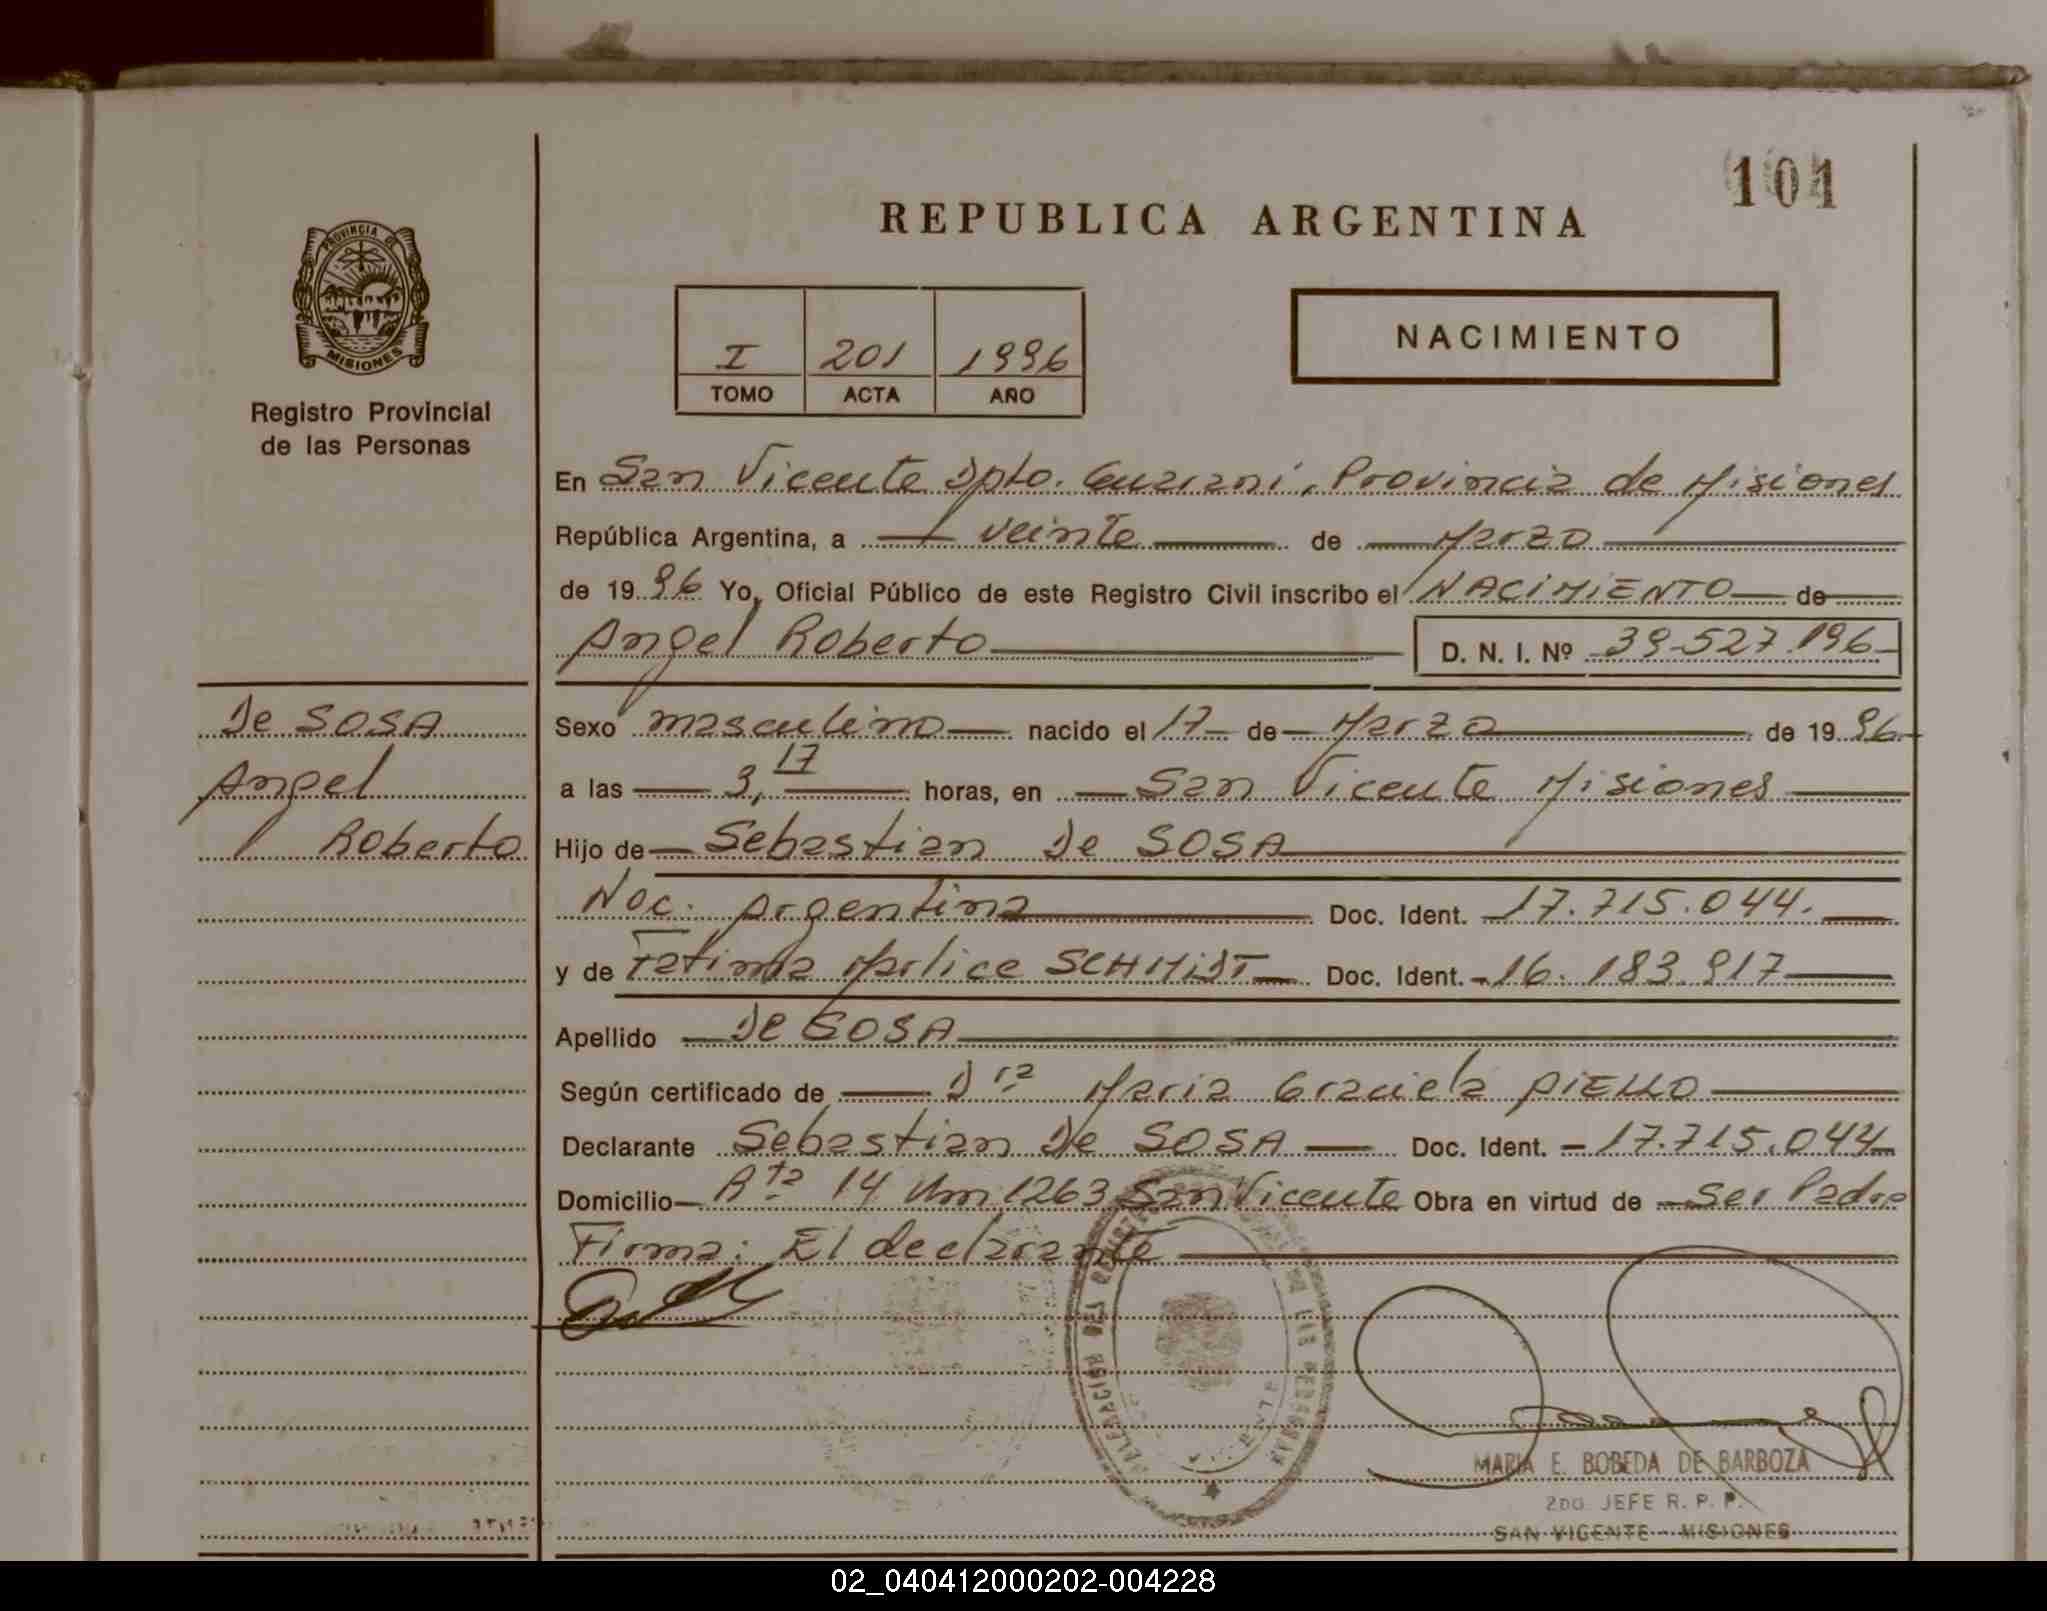 101
REPUBLICA ARGENTINA
PROVINCIA DE
MISIONES
Registro Provincial
de las Personas
I 201 1996
TOMO ACTA AÑO
NACIMIENTO
En San Vicente Dpto. Guarani, Provincia de Misiones
República Argentina, a veinte de Marzo
de 1996 Yo, Oficial Público de este Registro Civil inscribo el NACIMIENTO de
Angel Roberto D. N. I. Nº 39.527.196
De SOSA
Angel
Roberto
Sexo masculino nacido el 17 de Marzo de 1996
a las 3,17 horas, en San Vicente Misiones
Hijo de Sebastian De SOSA
Nac. Argentina Doc. Ident. 17.715.044.
y de Fatima Marlice SCHMIDT Doc. Ident. 16.183.917
Apellido De SOSA
Según certificado de Dra Maria Graciela
Declarante Sebastian De SOSA Doc. Ident. 17.715.044
Domicilio Rta 14 Km 1263 San Vicente Obra en virtud de ser Padre
Firma: El declarante
MARIA E. BOBEDA DE BARBOZA
2DO. JEFE R. P. P.
SAN VICENTE - MISIONES
02_040412000202-004228